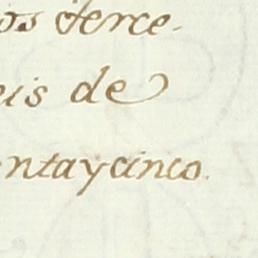 os terce-
eis de
entaycinco.